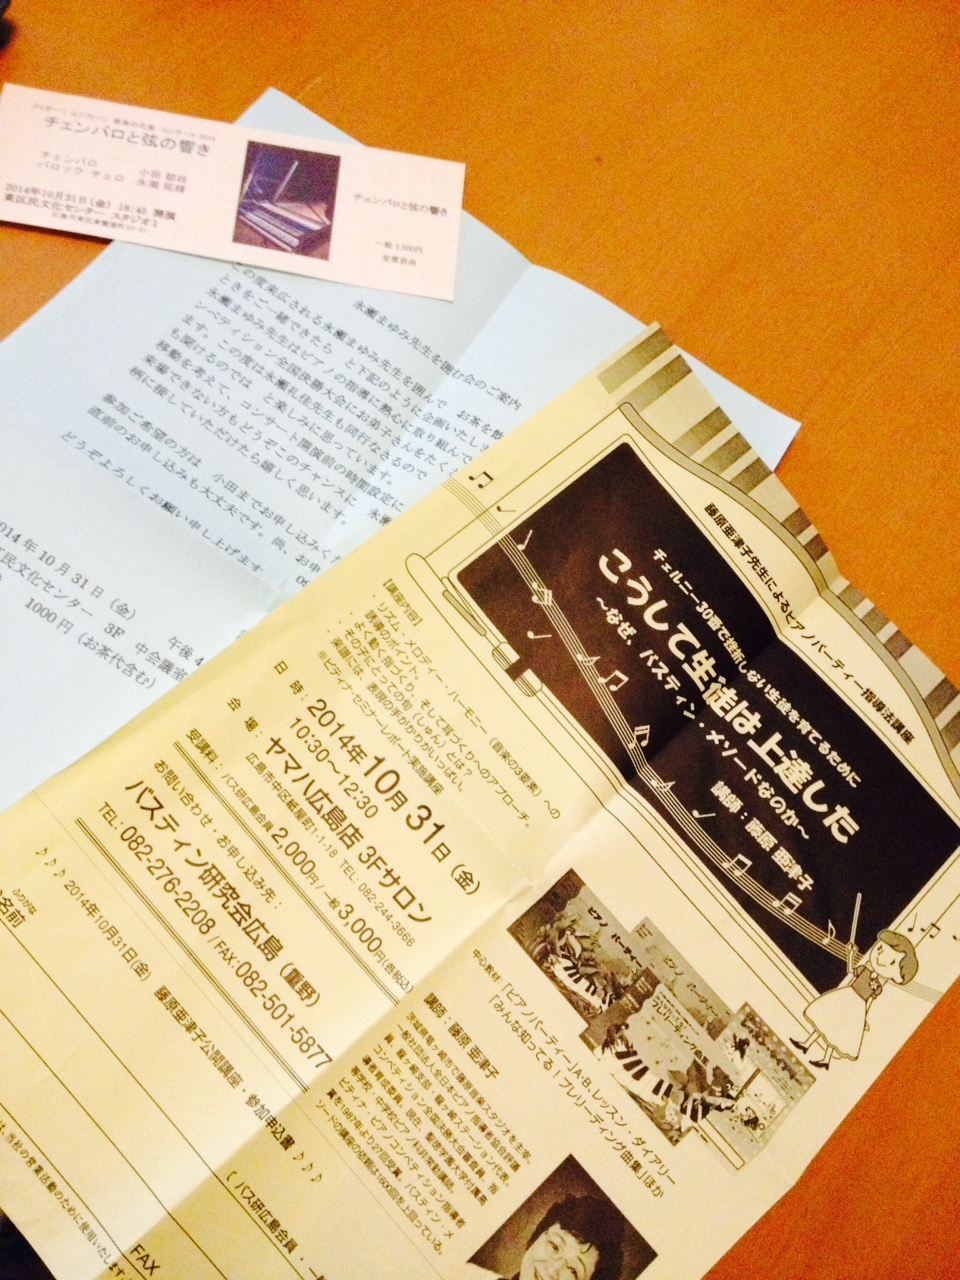 チェンバロと弦の響き
チェンバロ 小田 郁枝
バロック・チェロ 永瀬 拓輝
2014年10月31日(金) 18:45 開演
東区民文化センター スタジオ1
チェンバロと弦の響き
全席自由
永瀬まゆみ先生を囲む会のご案内
この度来広される永瀬まゆみ先生を囲んで お茶を
ときをご一緒できたら と下記のように企画いたしま
永瀬まゆみ先生はピアノの指導に熱心に取り組んで
ンペティション全国決勝大会にお弟子さんをたく
ます。この度は永瀬礼佳先生も同行なさるので
も聞けるのでは と楽しみに思っています。
移動を考えて、コンサート開演前の時間設定に
来場できない方もどうぞこのチャンスに 永瀬
柄に接していただけたら嬉しく思います。
参加ご希望の方は 小田までお申し込みく
直前のお申し込みも大丈夫です。尚、お申
どうぞよろしくお願い申し上げます
014年10月31日(金) 午後4
区民文化センター 3F 中会議室
1000円(お茶代含む)
藤原亜津子先生によるピアノパーティー指導法講座
チェルニー30番で挫折しない生徒を育てるために
こうして生徒は上達した
〜なぜ バスティン・メソードなのか〜
講師:藤原 亜津子
【講座内容】
・リズム・メロディー・ハーモニー(音楽の3要素)への
日 時:2014年10月31日(金)
10:30〜12:30
会 場:ヤマハ広島店 3Fサロン
広島市中区紙屋町1-1-18 TEL. 082-244-3666
受講料:バス研広島会員 2,000円/一般 3,000円(各税込)
お問い合わせ・お申し込み先:
バスティン研究会広島(重野)
TEL: 082-276-2208 / FAX: 082-501-5877
中心教材:「ピアノパーティーA・B、レッスン・ダイアリー
「みんな知ってる!プレリーディング曲集」ほか
講師:藤原 亜津子
♪♪♪ 2014年10月31日(金) 藤原亜津子公開講座・参加申込書 ♪♪♪
ふりがな
名前
[バス研広島会員・一
FAX
は、当社の営業活動のために使用いたします